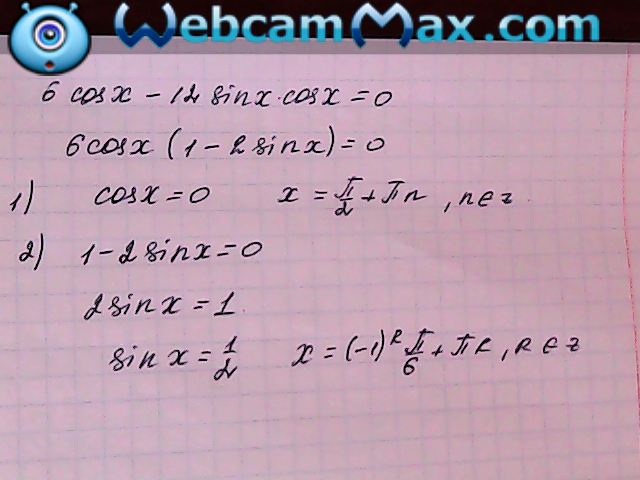 WebcamMax.com
6 cosx - 12 sinx·cosx = 0
6cosx (1 - 2sinx) = 0
1) cosx = 0 x = π/2 + πn, n∈z
2) 1 - 2sinx = 0
2sinx = 1
sinx = 1/2 x = (-1)^k π/6 + πk, k∈z